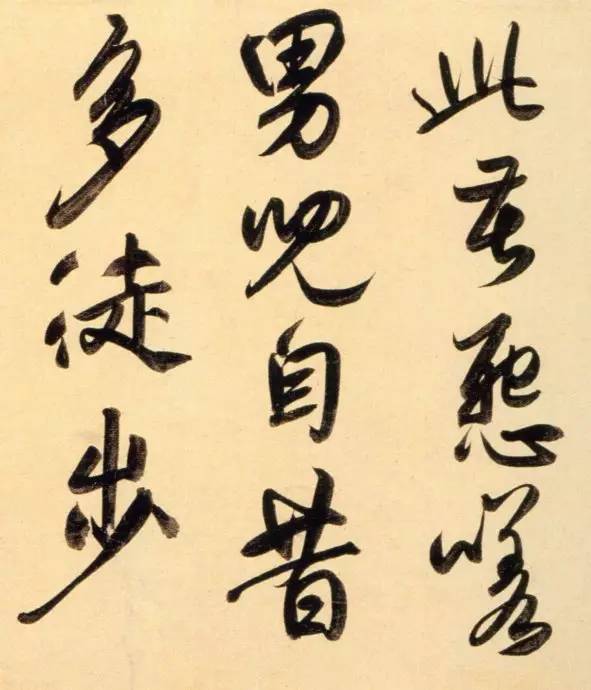 此嗟
男児自昔
多徒步